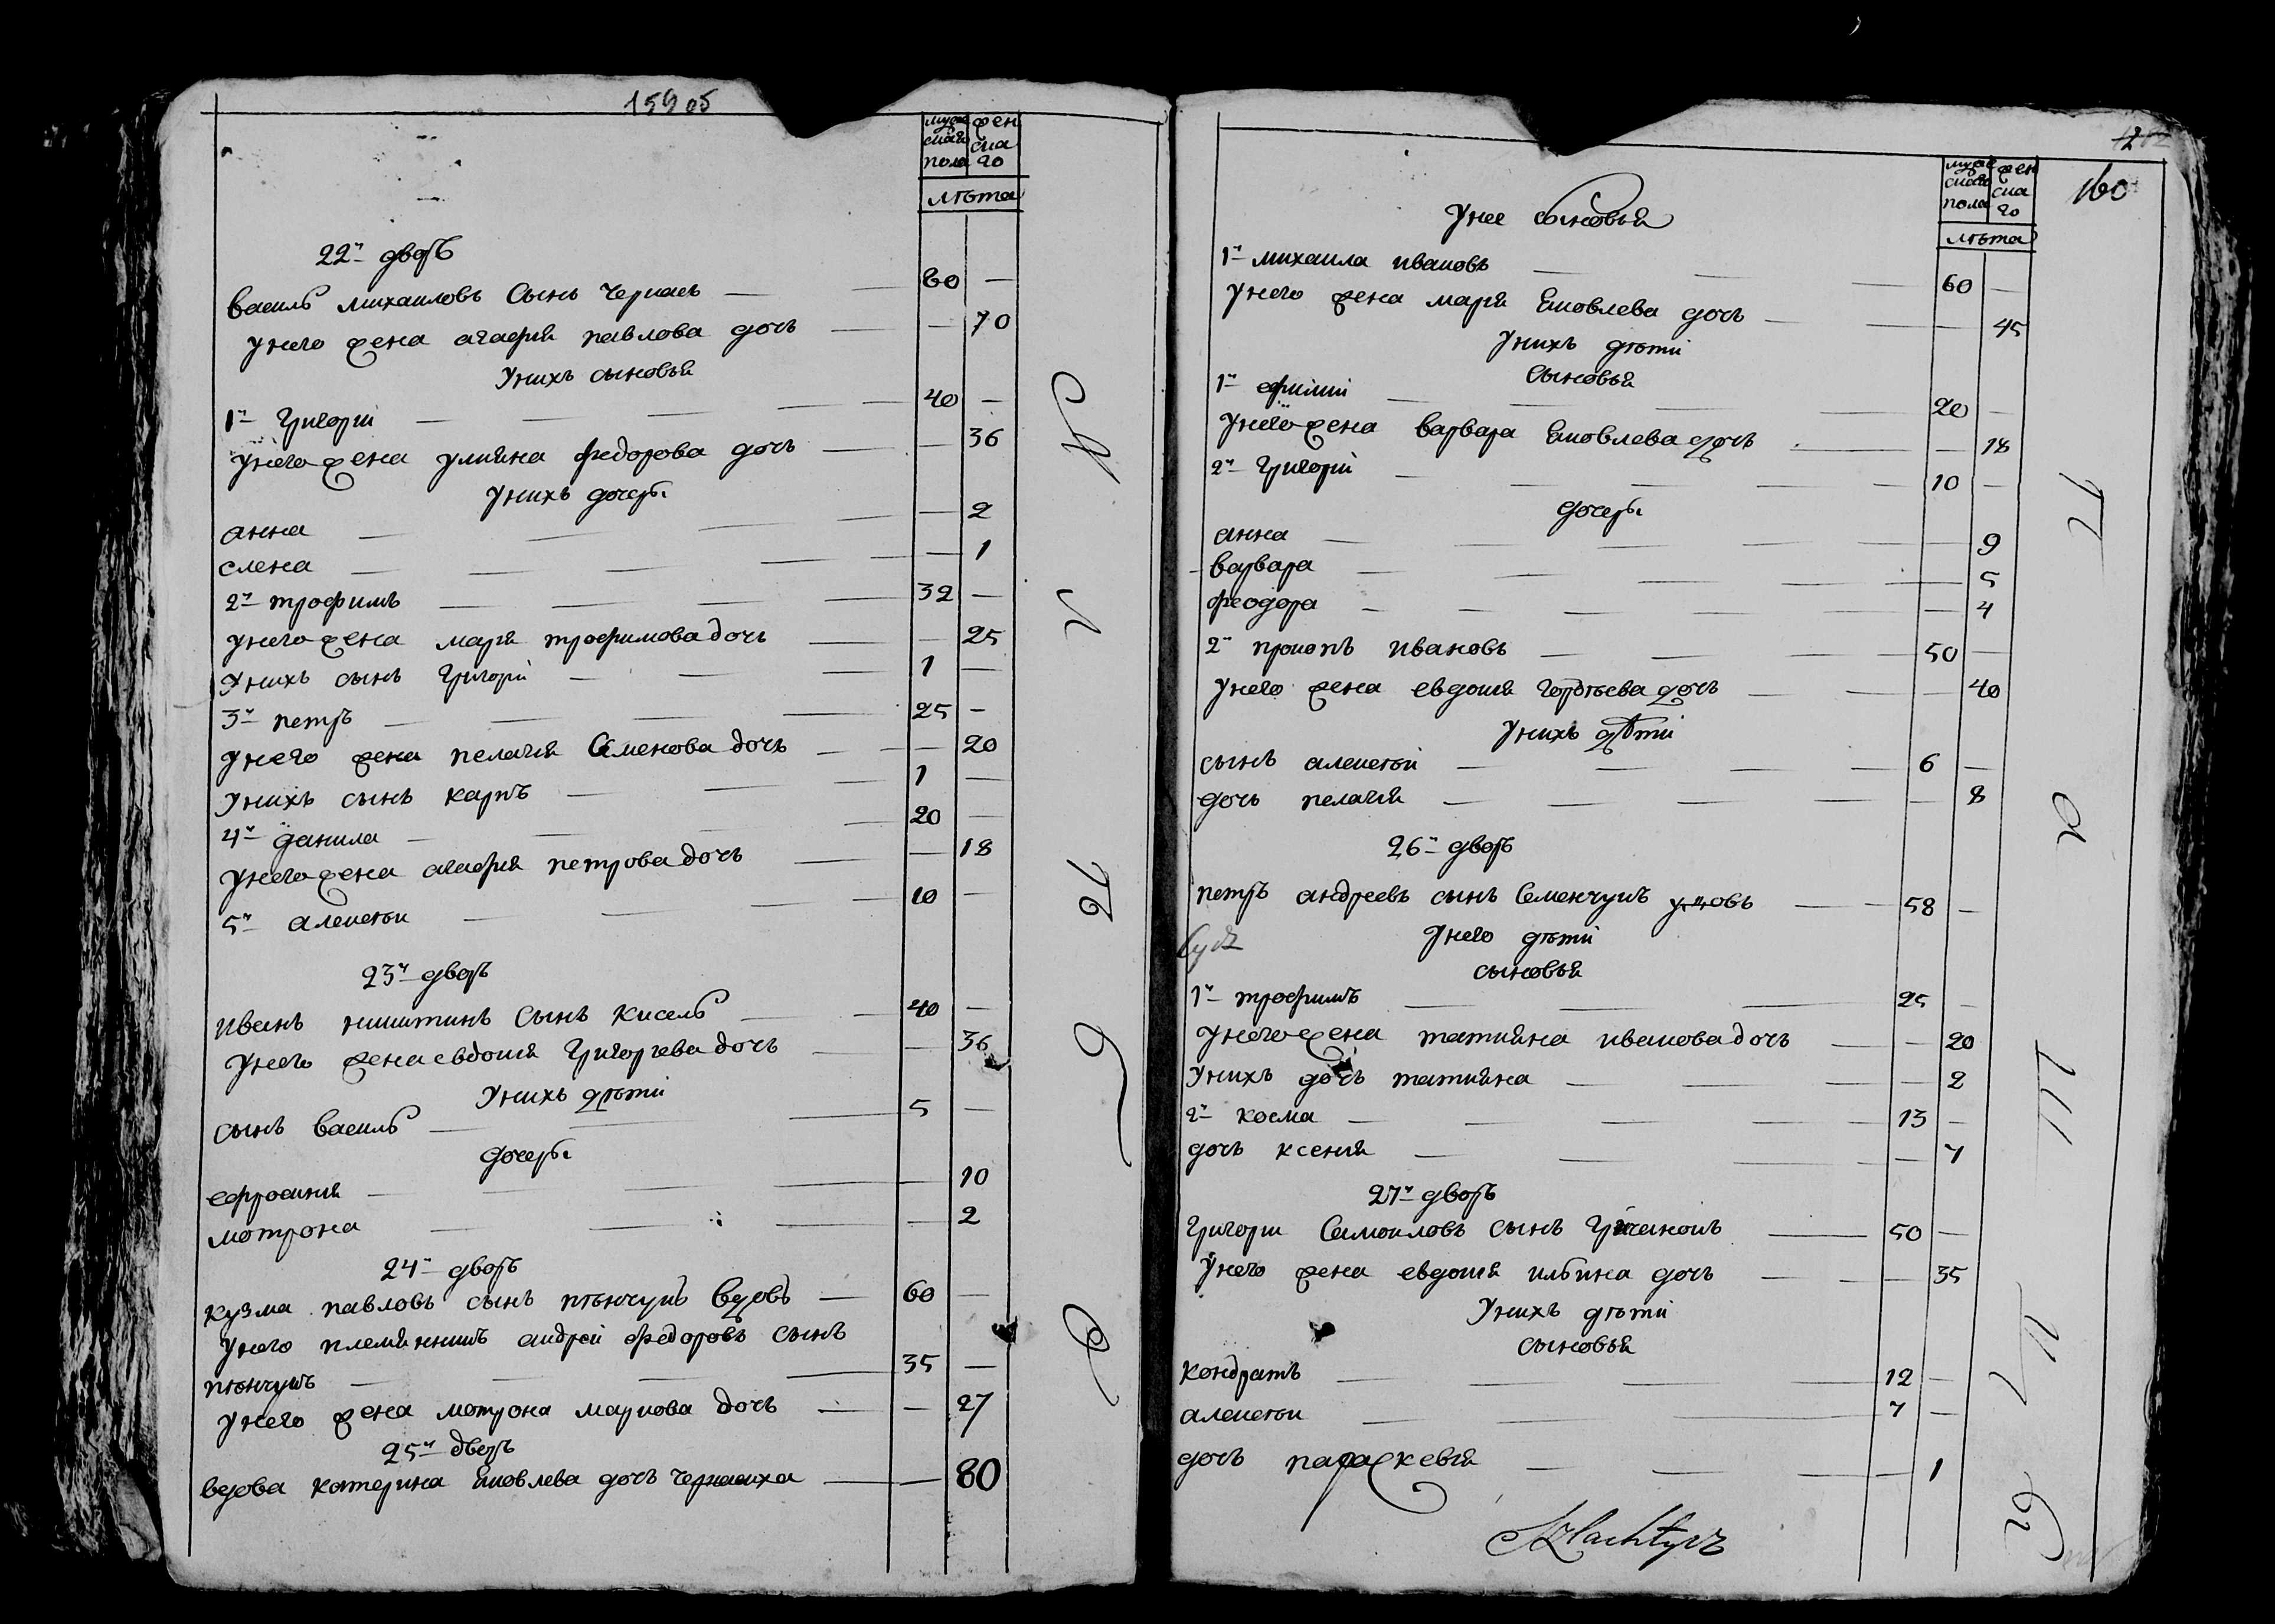 159 об
мужескаго пола
женскаго
лѣта
22й дворъ
василь михаиловъ сынъ черкасъ — 80 —
унего жена агафия павлова дочь — — 70
унихъ сыновья
1й григори — 40 —
унего жена улияна федорова дочь — — 36
унихъ дочеры
анна — — 2
елена — — 1
2й трофимъ — 32 —
унего жена мария трофимова дочь — — 25
унихъ сынъ григори — 1 —
3й петръ — 25 —
унего жена пелагия семенова дочь — — 20
унихъ сынъ карпъ — 1 —
4й данила — 20 —
унего жена агафия петрова дочь — — 18
5й алексеи — 10 —
23й дворъ
иванъ никитинъ сынъ кисель — 40 —
унего жена евдокия григориева дочь — — 36
унихъ дѣти
сынъ василь — 5 —
дочеры
ефросиния — — 10
мотрона — — 2
24й дворъ
кузма павловъ сынъ пѣнчукъ вдовъ — 60 —
унего племянникъ андрей федоровъ сынъ
пѣнчукъ — 35 —
унего жена мотрона маркова дочь — — 27
25й дворъ
вдова катерина яковлева дочь черкасиха — — 80
160
мужескаго пола
женскаго
лѣта
унее сыновья
1й михаила ивановъ — 60 —
унего жена мария яковлева дочь — — 45
унихъ дѣти
сыновья
1й ефимий — 20 —
унего жена варвара яковлева дочь — — 18
2й григорий — 10 —
дочеры
анна — — 9
варвара — — 5
феодора — — 4
2й прокопъ ивановъ — 50 —
унего жена евдокия гордѣева дочь — — 40
унихъ дѣти
сынъ алексей — 6 —
дочь пелагия — — 8
26й дворъ
петръ андреевъ сынъ семенчукъ вдовъ — 58 —
унего дѣти
сыновья
1й трофимъ — 25 —
унего жена татияна иванова дочь — — 20
унихъ дочь татияна — — 2
2й косма — 13 —
дочь ксения — — 7
27й дворъ
григори самоиловъ сынъ гричанокъ — 50 —
унего жена евдокия ильина дочь — — 35
унихъ дѣти
сыновья
кондратъ — 12 —
алексеи — 7 —
дочь параскевия — — 1